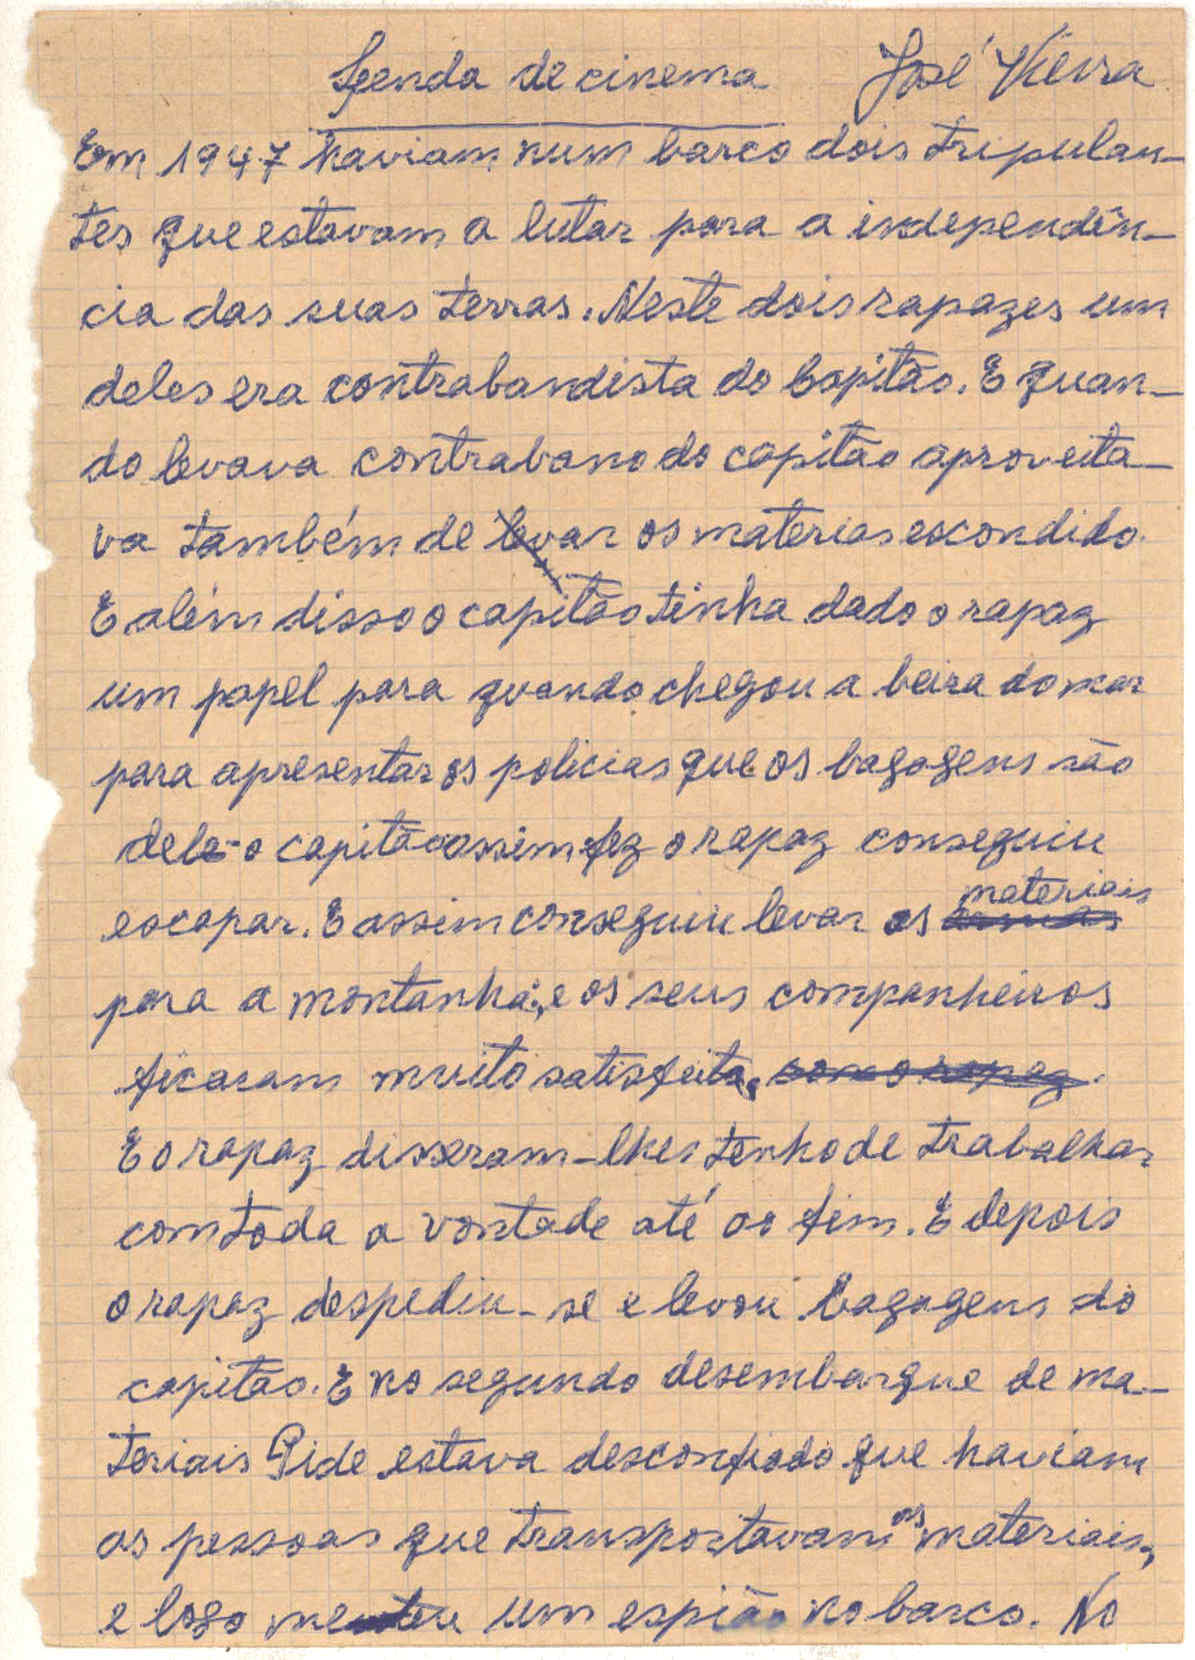 Lenda de cinema José Vieira
Em 1947 haviam num barco dois tripulan-
tes que estavam a lutar para a independên-
cia das suas terras. Neste dois rapazes um
deles era contrabandista do Capitão. E quan-
do levava contrabano do capitão aproveita-
va também de levar os materias escondido.
E além disso o capitão tinha dado o rapaz
um papel para quando chegou a beira do mar
para apresentar os policias que os bagagens são
dele-o capitão assim fez o rapaz conseguiu
escapar. E assim conseguiu levar os materiais
para a montanha; e os seus companheiros
ficaram muito satisfeita, com o rapaz.
E o rapaz disseram-lhes tenho de trabalhar
com toda a vontade até ao fim. E depois
o rapaz despediu-se e levou bagagens do
capitão. E no segundo desembarque de ma-
teriais Pide estava desconfiado que haviam
as pessoas que transportavam os materiais,
e logo um espião no barco. No